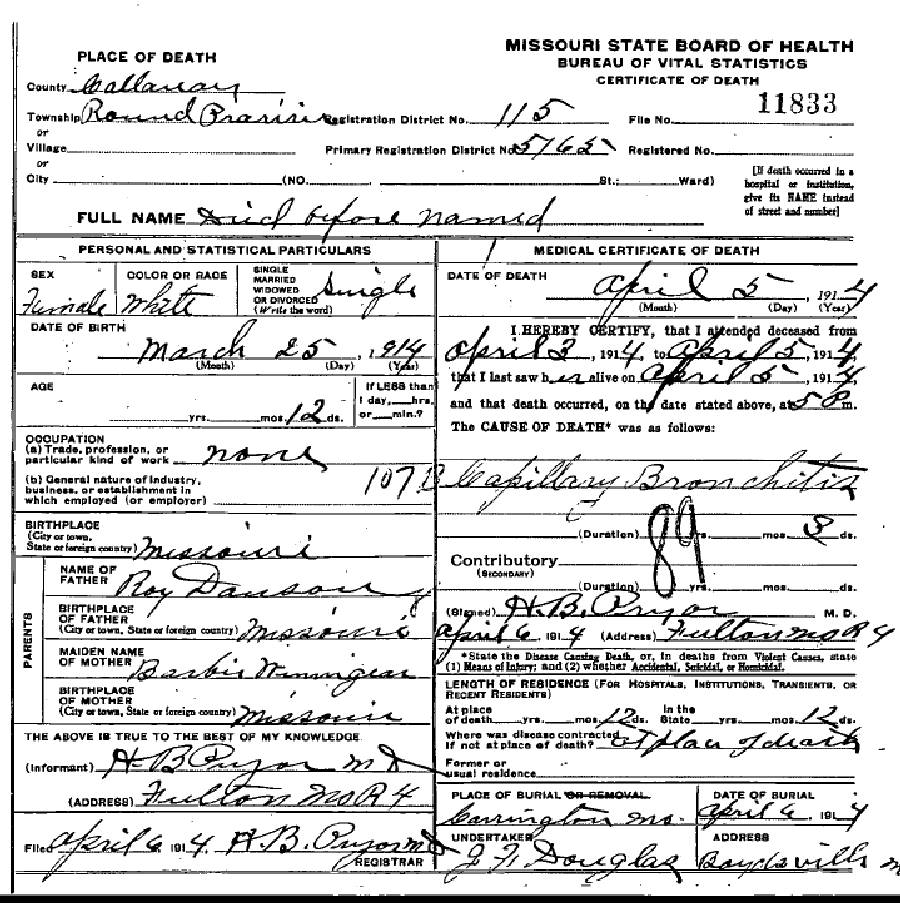 MISSOURI STATE BOARD OF HEALTH
BUREAU OF VITAL STATISTICS
CERTIFICATE OF DEATH
PLACE OF DEATH
County Callaway
Township Round Prairie Registration District No. 115 File No. 11833
or
Village Primary Registration District No. 5165 Registered No.
or
City (NO. St.; Ward)
[If death occurred in a
hospital or institution,
give its NAME instead
of street and number]
FULL NAME Died before named
PERSONAL AND STATISTICAL PARTICULARS
SEX
Female
COLOR OR RACE
White
SINGLE
MARRIED
WIDOWED
OR DIVORCED
(Write the word)
Single
DATE OF BIRTH
March 25, 1914
(Month) (Day) (Year)
AGE
yrs. mos. 12 ds.
If LESS than
1 day, hrs.
or min.?
OCCUPATION
(a) Trade, profession, or
particular kind of work none
(b) General nature of industry,
business, or establishment in
which employed (or employer)
107 B
BIRTHPLACE
(City or town,
State or foreign country) Missouri
PARENTS
NAME OF
FATHER Roy Dawson
BIRTHPLACE
OF FATHER
(City or town, State or foreign country) Missouri
MAIDEN NAME
OF MOTHER Barbie
BIRTHPLACE
OF MOTHER
(City or town, State or foreign country) Missouri
THE ABOVE IS TRUE TO THE BEST OF MY KNOWLEDGE
(Informant) H B Pryor M D
(ADDRESS) Fulton Mo R 4
Filed April 6 1914. H. B. Pryor MD
REGISTRAR
MEDICAL CERTIFICATE OF DEATH
DATE OF DEATH
April 5, 1914
(Month) (Day) (Year)
I HEREBY CERTIFY, that I attended deceased from
April 3, 1914, to April 5, 1914,
that I last saw her alive on April 5, 1914,
and that death occurred, on the date stated above, at 5 P m.
The CAUSE OF DEATH* was as follows:
Capillary Bronchitis
(Duration) yrs. mos. 3 ds.
89
Contributory
(SECONDARY)
(Duration) yrs. mos. ds.
(Signed) H. B. Pryor M. D.
April 6 1914 (Address) Fulton Mo R 4
*State the Disease Causing Death, or, in deaths from Violent Causes, state
(1) Means of Injury; and (2) whether Accidental, Suicidal, or Homicidal.
LENGTH OF RESIDENCE (FOR HOSPITALS, INSTITUTIONS, TRANSIENTS, OR
RECENT RESIDENTS)
At place
of death yrs. mos. 12 ds.
In the
State yrs. mos. 12 ds.
Where was disease contracted
if not at place of death? at place of death
Former or
usual residence
PLACE OF BURIAL OR REMOVAL
Carrington Mo.
DATE OF BURIAL
April 6 1914
UNDERTAKER
J F Douglas
ADDRESS
Boydsville M